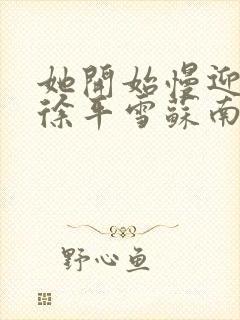 她開始慢迎
徐平雪蘇南
野心鱼